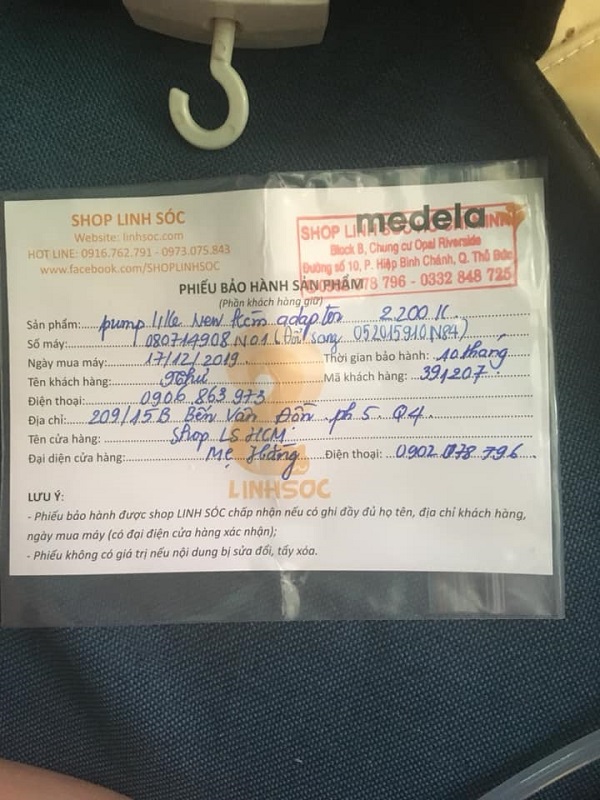 medela
SHOP LINH SÓC
Website: linhsoc.com
HOT LINE: 0916.762.791 - 0973.075.843
www.facebook.com/SHOPLINHSOC
SHOP LINH
Block B, Chung cư Opal Riverside
Đường số 10, P. Hiệp Bình Chánh, Q. Thủ Đức
78 796 - 0332 848 725
PHIẾU BẢO HÀNH SẢN PHẨM
(Phần khách hàng giữ)
Sản phẩm: pump like New kèm adapton 2.200 K
Số máy: 080714908 N01 (Đổi sang 052015910 N84)
Ngày mua máy: 17/12/2019 Thời gian bảo hành: 10 tháng
Tên khách hàng: Mã khách hàng: 391207
Điện thoại: 0906 863 973
Địa chỉ: 209/15B Bến Vân Đồn ph 5 Q4
Tên cửa hàng: Shop LS HCM
Đại diện cửa hàng: Mẹ Hằng Điện thoại: 0902 078 796
LINHSOC
LƯU Ý:
- Phiếu bảo hành được shop LINH SÓC chấp nhận nếu có ghi đầy đủ họ tên, địa chỉ khách hàng,
ngày mua máy (có đại diện cửa hàng xác nhận);
- Phiếu không có giá trị nếu nội dung bị sửa đổi, tẩy xóa.